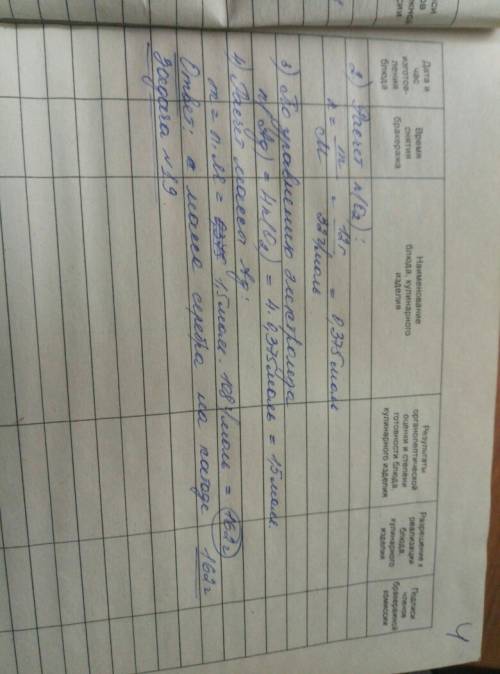 Дата и час изготовления блюда
Время снятия бракеража
Наименование блюда, кулинарного изделия
Результаты органолептической оценки и степени готовности блюда, кулинарного изделия
Разрешение к реализации блюда, кулинарного изделия
Подписи членов бракеражной комиссии
4
2) Расчёт n(O₂):
n = m/M = 12г/32г/моль = 0,375 моль
3) По уравнению электролиза
n(Ag) = 4n(O₂) = 4·0,375моль = 1,5моль.
4) Расчёт массы Ag:
m = n·M = 1,5моль·108г/моль = 162г
Ответ: масса серебра на катоде 162г
Задача №39.